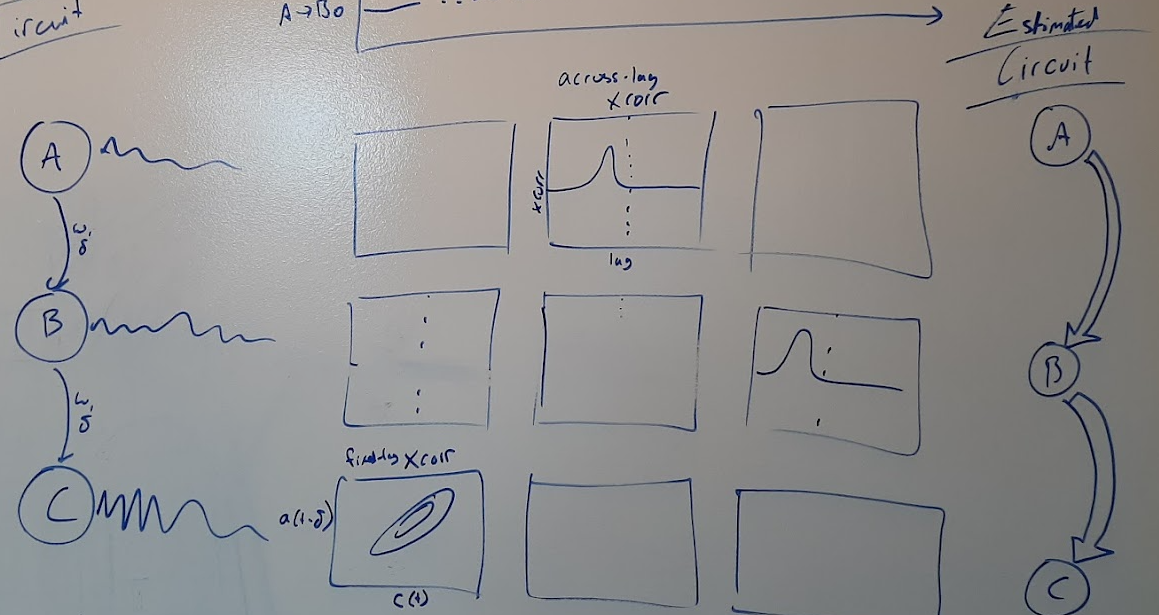 ircuit
A→B0
Estimated
Circuit
across-lag
xcorr
A
xcorr
lag
A
B
B
fixed-lag xcorr
C
a(t-δ)
c(t)
C